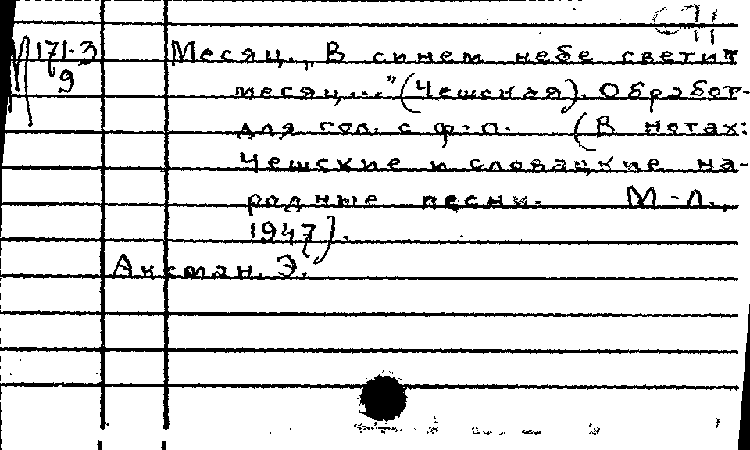 М 171-3
9
Месяц. „В синем небе светит
месяц..." (Чешская). Обработ-
для гол. с ф-п. (В нотах:
Чешские и словацкие на-
родные песни. М-Л.,
1947).
Аксман, Э.